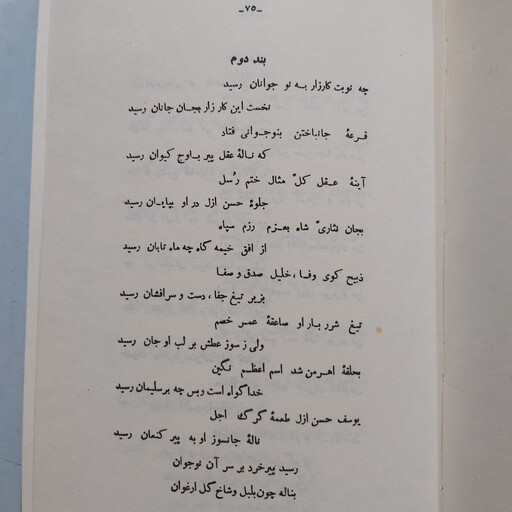 -۷۵-
بند دوم
چه نوبت کارزار به نو جوانان رسید
نخست این کار زار بجان جانان رسید
قرعهٔ جانباختن بنوجوانی فتاد
که نالهٔ عقل پیر باوج کیوان رسید
آینهٔ عقل کلّ مثال ختم رُسل
جلوهٔ حسن ازل در او بپایان رسید
بجان نثاریّ شاه بعزم رزم سپاه
از افق خیمه گاه چه ماه تابان رسید
ذبیح کوی وفا، خلیل صدق و صفا
بزیر تیغ جفا، دست و سرافشان رسید
تیغ شرر بار او صاعقهٔ عمر خصم
ولی ز سوز عطش بر لب او جان رسید
بحلقهٔ اهرمن شد اسم اعظم نگین
خدا گواه است و بس چه بر سلیمان رسید
یوسف حسن ازل طعمهٔ گرگ اجل
نالهٔ جانسوز او به پیر کنعان رسید
رسید پیر خرد بر سر آن نوجوان
بناله چون بلبل و شاخ گل ارغوان